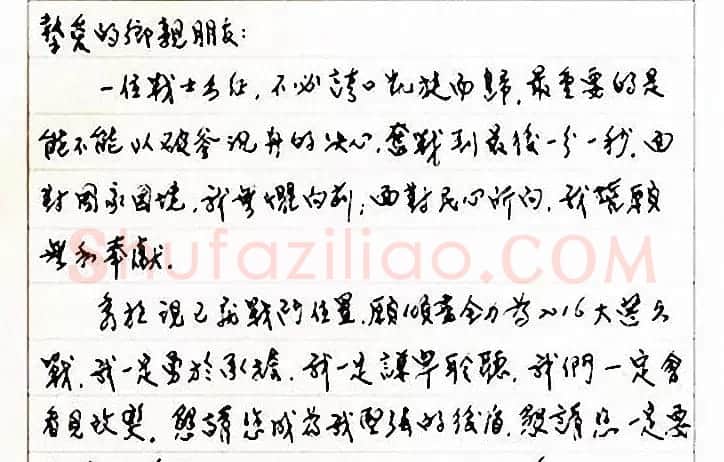 摯愛的鄉親朋友：
一位戰士出征，不必誇口凱旋而歸，最重要的是
能不能以破釜沉舟的決心，奮戰到最後一分一秒。面
對國家困境，我無懼向前；面對民心所向，我誓願
無私奉獻。
Shufaziliao.COM
秀柱現已就戰鬥位置，願傾畫全力為2016大選之
戰，我一定勇於承擔，我一定謙卑聆聽，我們一定會
看見改變。懇請您成為我堅強的後盾，懇請您一定要